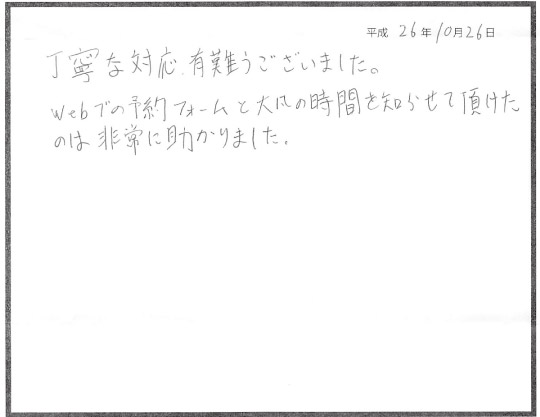 平成 26年10月26日
丁寧な対応 有難うございました。
Webでの予約フォームと大凡の時間を知らせて頂けた
のは非常に助かりました。